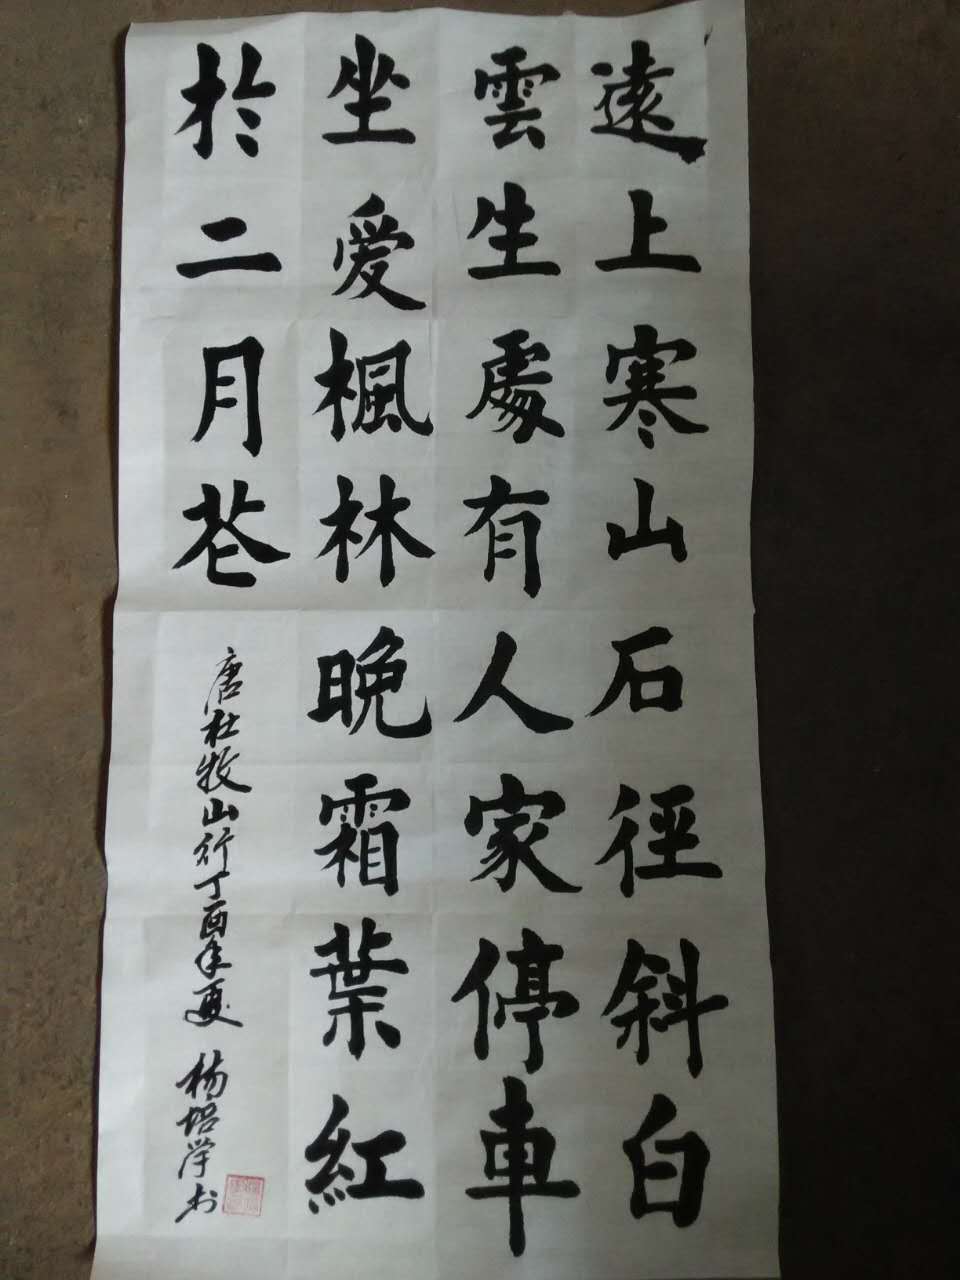 遠上寒山石徑斜白
雲生處有人家停車
坐爱楓林晚霜葉紅
於二月花
唐杜牧山行丁酉年夏 楊培学书